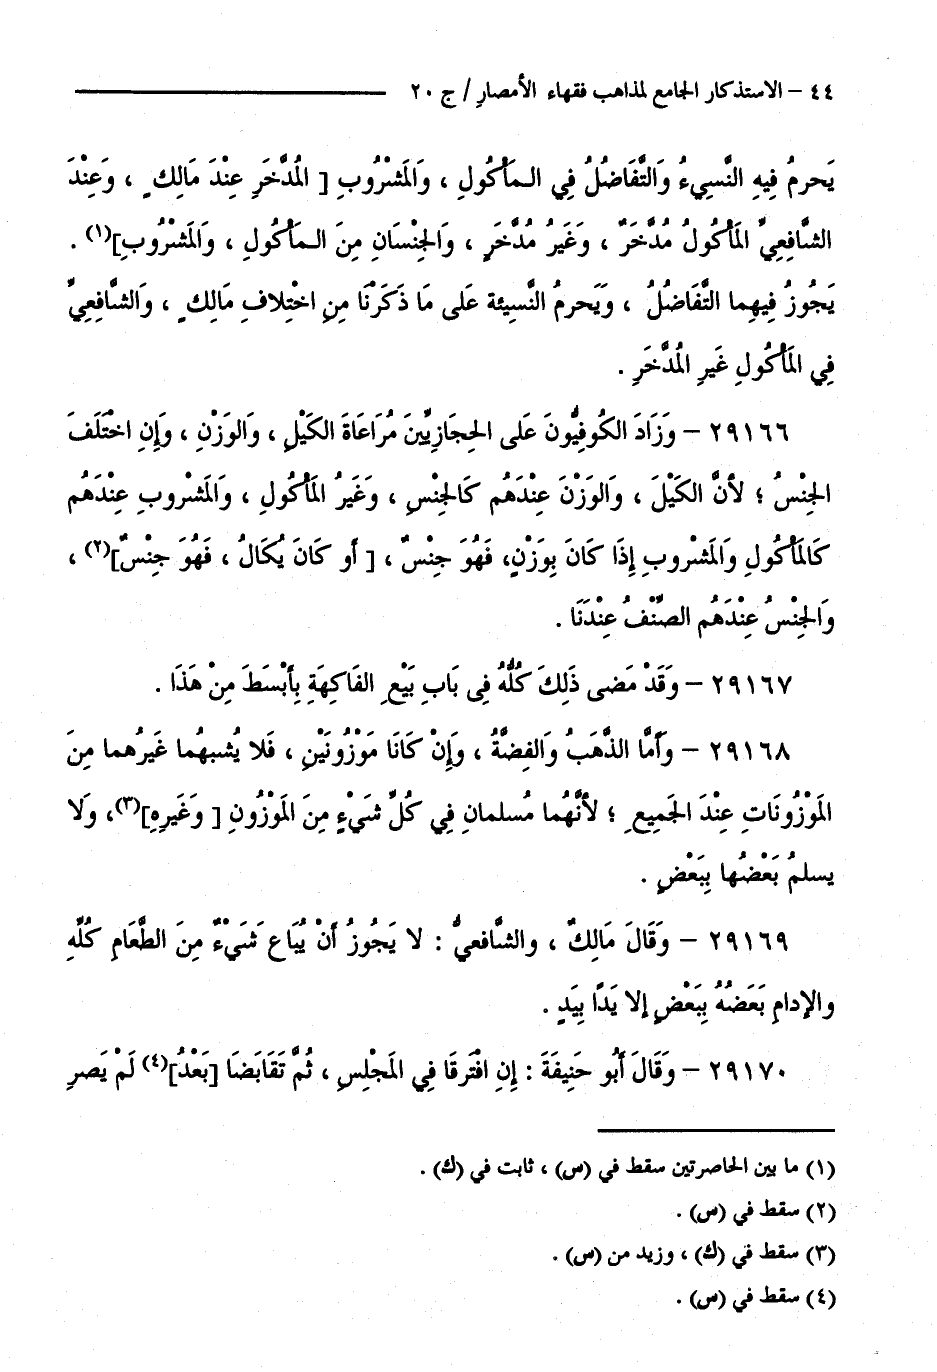 ٤٤ – الاستذكار الجامع لمذاهب فقهاء الأمصار / ج ٢٠
يَحرمُ فِيهِ النَّسِيءُ وَالتَّفَاضُلُ فِي الـمَأْكُولِ ، وَالَمشْرُوبِ [ الُمدَّخَرِ عِنْدَ مَالِكٍ ، وَعِنْدَ
الشَّافِعِيِّ الَمأْكُولُ مُدَّخَرٌ ، وَغَيرُ مُدَّخَرٍ ، وَالجِنْسَانِ مِنَ الـمَأْكُولِ ، وَالَمشْرُوبِ](١) .
يَجُوزُ فِيهِما التَّفَاضُلُ ، وَيَحرمُ النَّسِيئة عَلى مَا ذَكَرْنَا مِنِ اخْتِلافِ مَالِكٍ ، وَالشَّافِعِيِّ
فِي الَمأْكُولِ غَيرِ الُمدَّخَرِ .
٢٩١٦٦ – وَزَادَ الكُوفِيُّونَ عَلى الحِجَازِيِّينَ مُرَاعَاةَ الكَيْلِ ، وَالوَزْنِ ، وَإِنِ اخْتَلَفَ
الجِنْسُ ؛ لأنَّ الكَيْلَ ، وَالوَزْنَ عِنْدَهُم كَالجِنْسِ ، وَغَيرُ الَمأْكُولِ ، وَالَمشْروبِ عِنْدَهُم
كَالَمأْكُولِ وَالَمشْروبِ إِذَا كَانَ بِوَزْنٍ، فَهُوَ جِنْسٌ ، [ أو كَانَ يُكَالُ ، فَهُوَ جِنْسٌ](٢) ،
وَالجِنْسُ عِنْدَهُم الصِّنْفُ عِنْدَنَا .
٢٩١٦٧ – وَقَدْ مَضى ذَلِكَ كُلُّهُ فِى بَابِ بَيْعِ الفَاكِهَةِ بِأَبْسَطَ مِنْ هَذَا .
٢٩١٦٨ – وَأَمَّا الذَّهَبُ وَالفِضَّةُ ، وَإِنْ كَانَا مَوْزُونَيْنِ ، فَلا يُشبِهُما غَيرُهما مِنَ
الَموْزُونَاتِ عِنْدَ الجَمِيعِ ؛ لأنَّهُما مُسلمانِ فِي كُلِّ شَيْءٍ مِنَ الَموْزُونِ [ وَغَيرِهِ](٣)، وَلا
يسلمُ بَعْضُها بِبَعْضٍ .
٢٩١٦٩ – وَقَالَ مَالِكٌ ، والشَّافعيُّ : لا يَجُوزُ أَنْ يُبَاع شَيْءٌ مِنَ الطَّعَامِ كُلِّهِ
والإدامِ بَعَضُهُ بِبَعْضٍ إلا يَدًا بِيَدٍ .
٢٩١٧٠ – وَقَالَ أَبُو حَنِيفَةَ : إِنِ افْتَرقَا فِي الَمجْلِسِ ، ثُمَّ تَقَابَضَا [بَعْدُ](٤) لَمْ يَصر
(١) ما بين الحاصرتين سقط في (س) ، ثابت في (ك) .
(٢) سقط في (س) .
(٣) سقط في (ك) ، وزيد من (س) .
(٤) سقط في (س) .